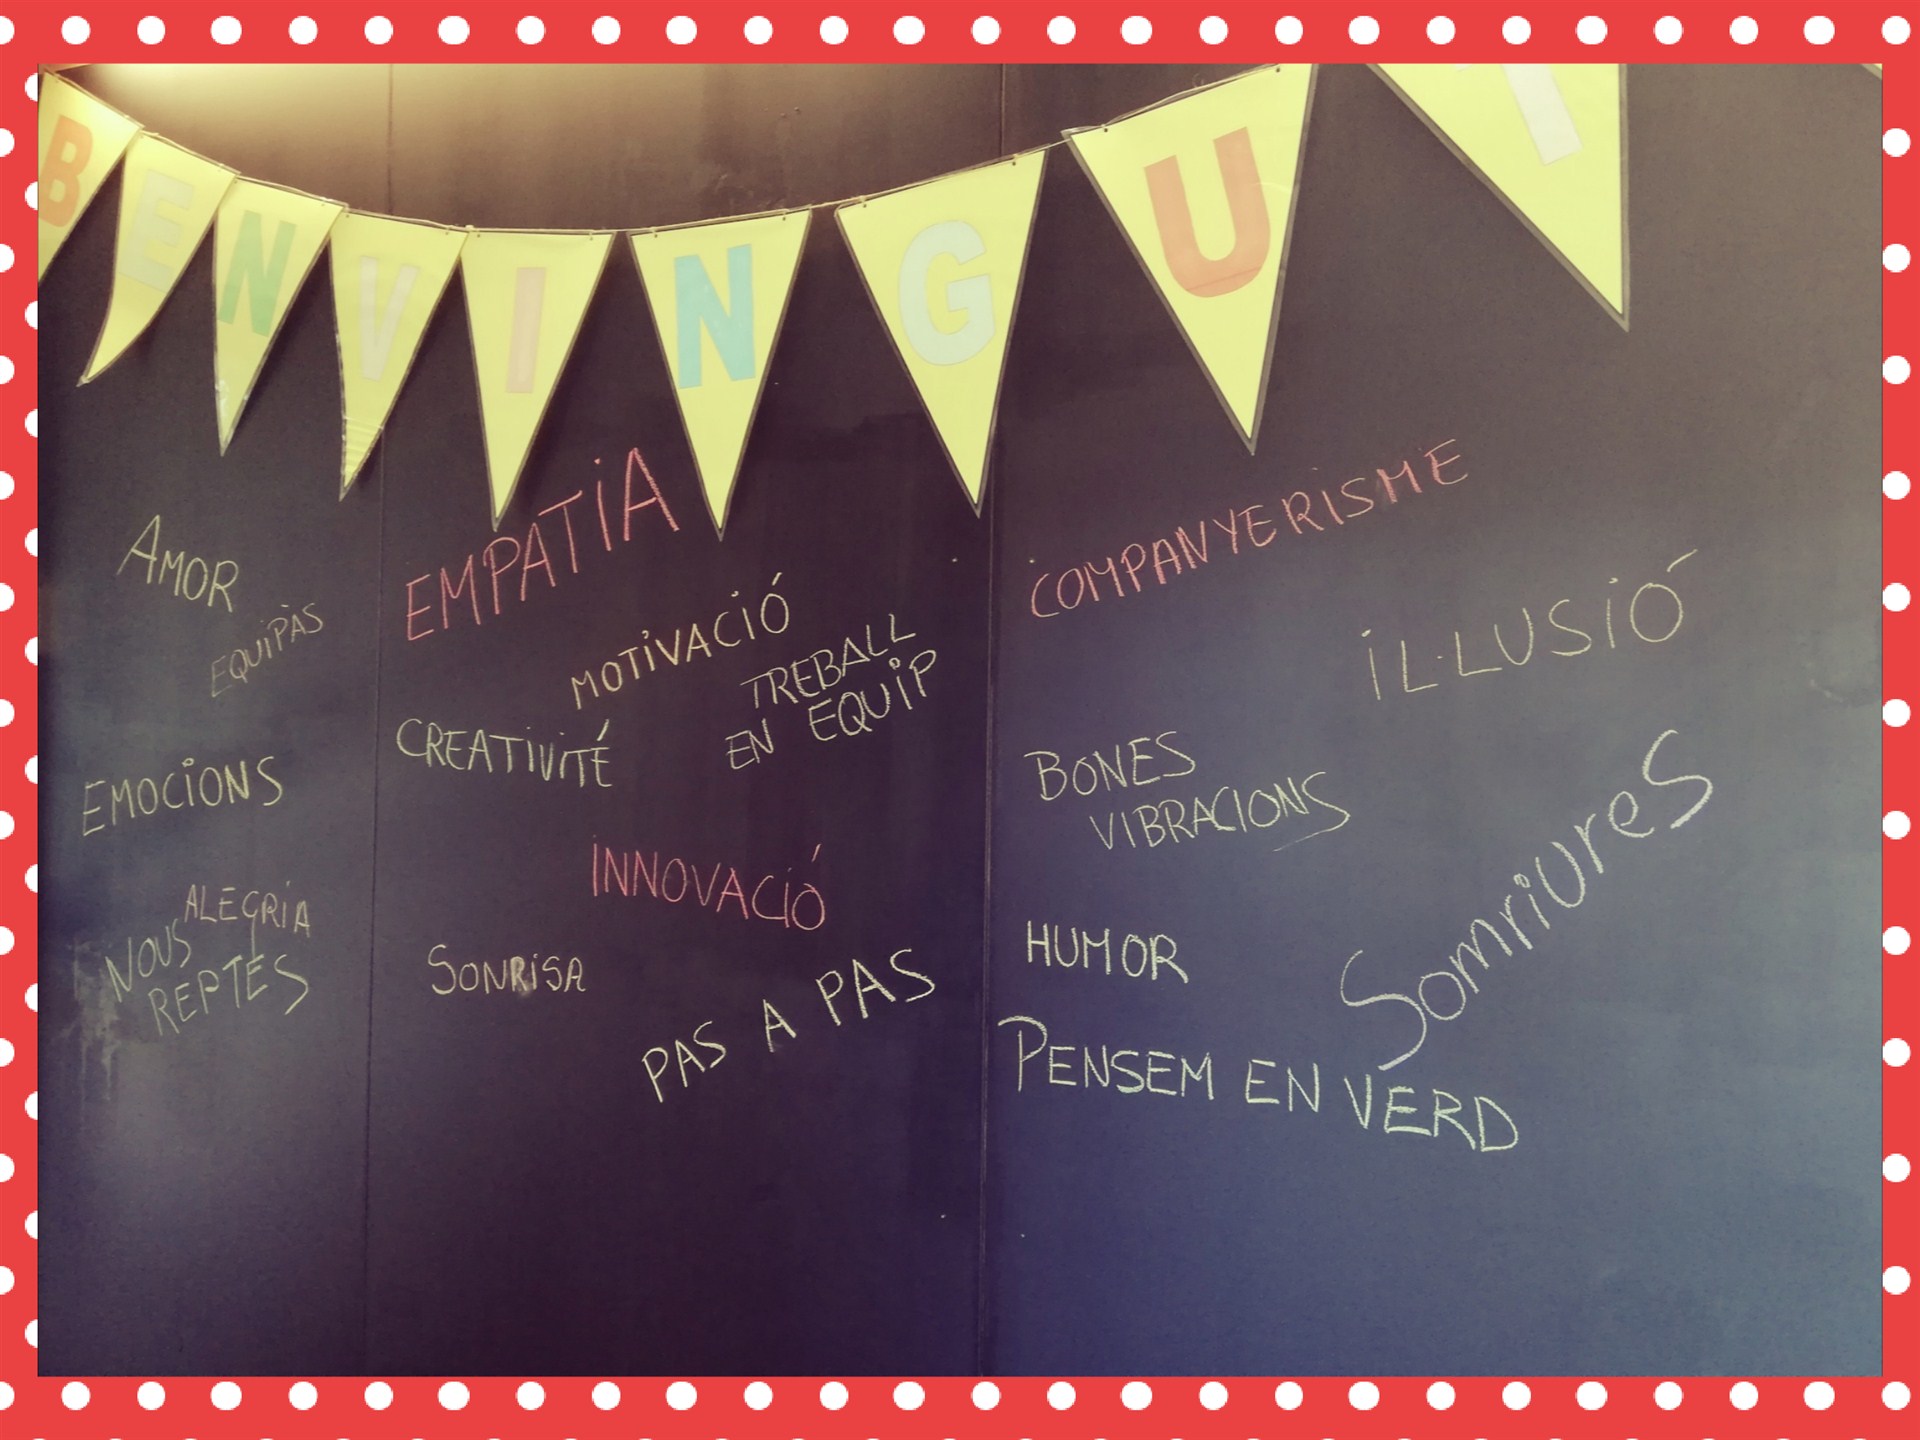 BENVINGUT
AMOR
EQUIPÀS
EMOCIONS
ALEGRIA
NOUS
REPTES
EMPATIA
MOTIVACIÓ
TREBALL
EN EQUIP
CREATIVITÉ
INNOVACIÓ
SONRISA
PAS A PAS
COMPANYERISME
IL·LUSIÓ
BONES
VIBRACIONS
SomriureS
HUMOR
PENSEM EN VERD